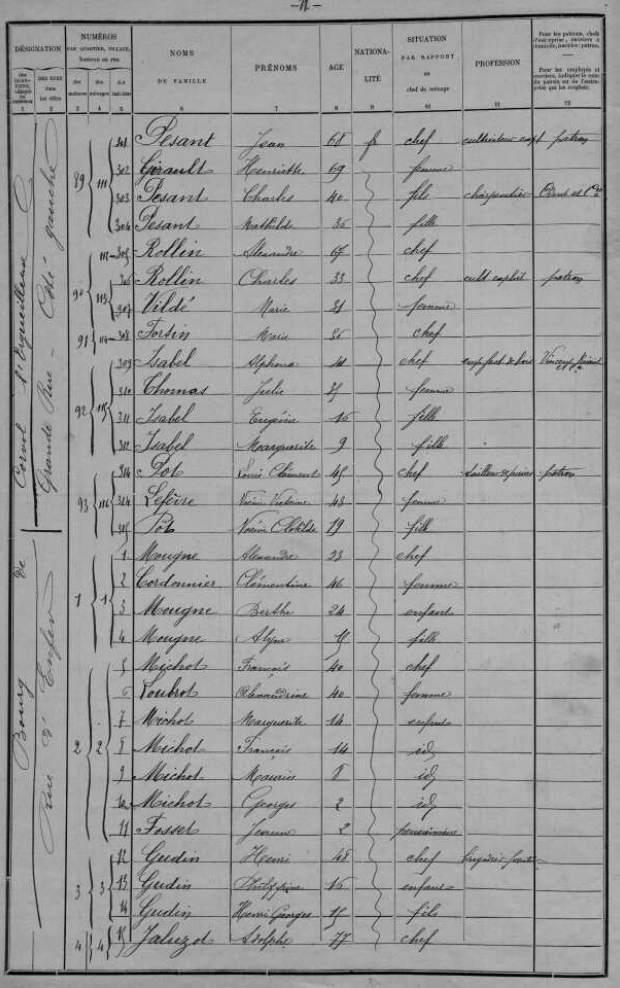 — 12 —
DÉSIGNATION
NUMÉROS
PAR QUARTIER, VILLAGE,
hameau ou rue
NOMS
DE FAMILLE
PRÉNOMS
AGE
NATIONALITÉ
SITUATION
PAR RAPPORT
au
chef de ménage
PROFESSION
Pour les patrons, chefs d'entreprise, ouvriers à domicile, inscrire: patron.
Pour les employés et ouvriers, indiquer le nom du patron ou de l'entreprise qui les emploie.
1 2 3 4 5 6 7 8 9 10 11 12
Bourg de Corvol l'Orgueilleux
Grande Rue - Côté gauche
89 111 301 Pesant Jean 68 fr chef cultivateur expt patron
302 Girault Henriette 69 femme
303 Pesant Charles 40 fils charpentier
304 Pesant Mathilde 36 fille
90 112 305 Rollin Alexandre 67 chef
113 306 Rollin Charles 33 chef cult exploit patron
307 Vildé Marie 31 femme
91 114 308 Forsin Marie 36 chef
92 115 309 Isabel Alphonse chef
310 Thomas Julie 35 femme
311 Isabel Eugénie 16 fille
312 Isabel Marguerite 9 fille
93 116 314 Pot Louis Clément 45 chef patron
314 Lefèvre Victorine 43 femme
315 Pot Noémi Clotilde 19 fille
Rue d'Enfer
1 1 1 Mougne Alexandre 53 chef
2 Cordonnier Clémentine 46 femme
3 Mougne Berthe 24 enfant
4 Mougne 15 fille
2 2 5 Michot François 40 chef
6 Loubrot Alexandrine 40 femme
7 Michot Marguerite 14 enfant
8 Michot François 14 id
9 Michot Maurice 8 id
10 Michot Georges 2 id
11 Fosset Jeanne 2 pensionnaire
3 3 12 Gudin Henri 48 chef
13 Gudin 16 enfant
14 Gudin Henri Georges 15 fils
4 4 15 Jaluzot Adolphe 77 chef